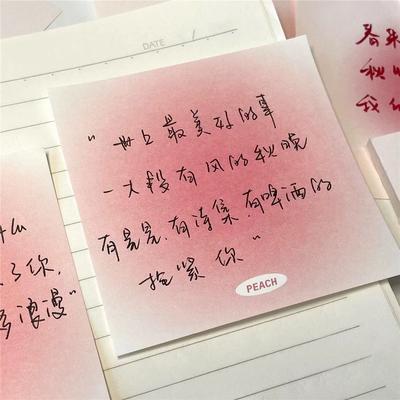 DATE /
"世上最美好的事
一大段有风的秋晚
有星星.有诗集.有啤酒的
紧你"
PEACH
什么
了你,
浪漫"
春
秋
我